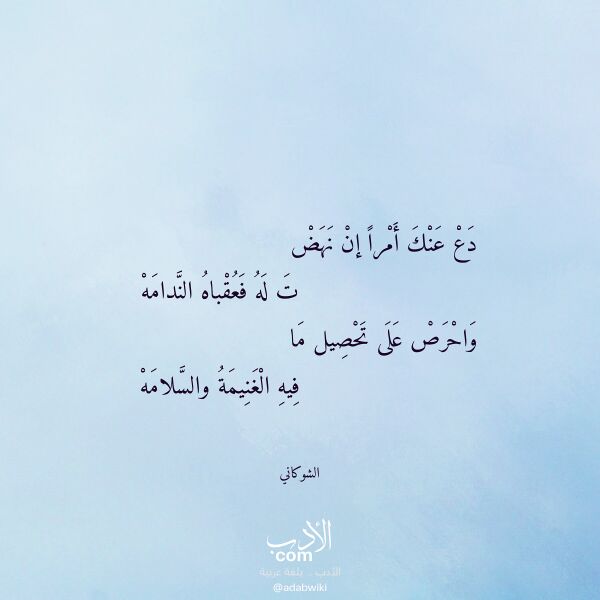 دَعْ عَنْكَ أَمْراً إنْ نَهَضْ
تَ لَهُ فَعُقْباهُ النَّدامَهْ
وَاحْرَصْ عَلَى تَحْصِيل مَا
فِيهِ الْغَنِيمَةُ والسَّلامَهْ
الشوكاني
الأدب
com
الأدب .. بلغة عربية
@adabwiki